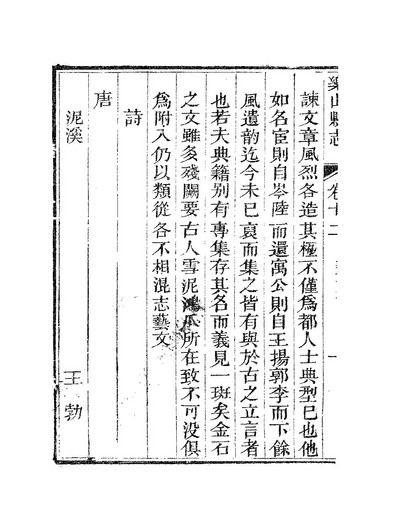 樂山縣志
卷十二
一
諫文章風烈各造其極不僅為都人士典型已也他
如名宦則自岑陸而還寓公則自王揚郭李而下餘
風遺韵迄今未已裒而集之皆有與於古之立言者
也若夫典籍別有專集存其名而義見一斑矣金石
之文雖多殘闕要古人雪泥鴻爪所在致不可沒俱
為附入仍以類從各不相混志藝文
詩
唐
泥溪 王勃